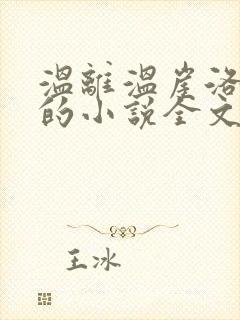 溫離溫崖洛
的小說全文
王冰